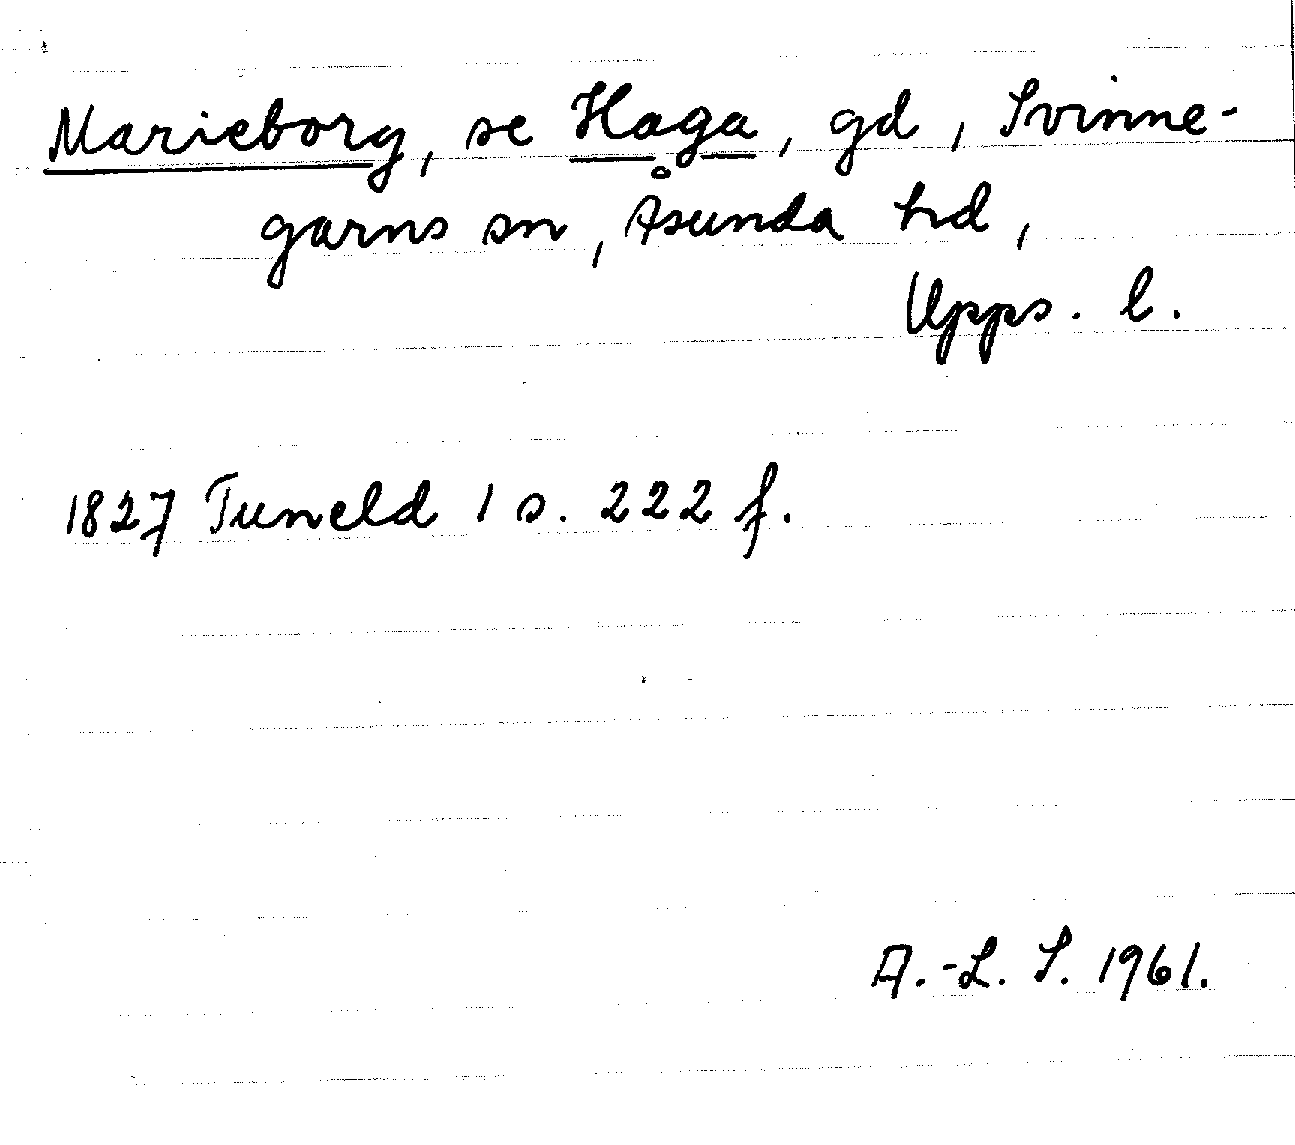 Marieborg, se Haga, gd, Svinne-
garns sn, Åsunda hd,
Upps. l.
1827 Tuneld 1 s. 222 f.
A.-L. S. 1961.